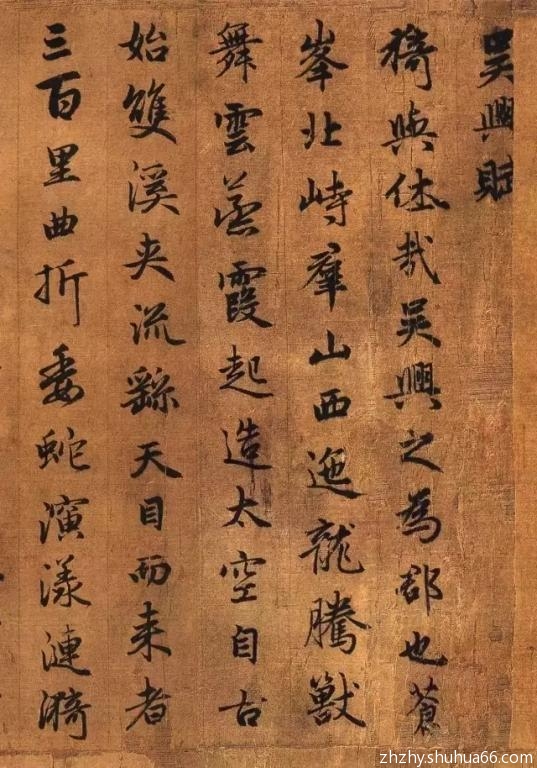 吳興賦
猗與休哉吳興之為郡也蒼
峯北峙羣山西迤龍騰獸
舞雲蒸霞起造太空自古
始雙溪夾流繇天目而來者
三百里曲折委蛇演漾漣漪
zhzhy.shuhua66.com